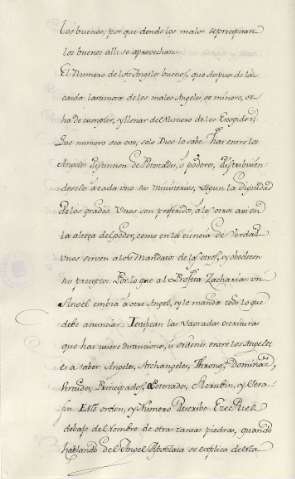 los buenos, por que donde los malos se precipitan
los buenos alli se aprovechan.
El Numero de los Angeles buenos, que despues de la
caida lastimosa de los malos Angeles, se minoro, se
ha de cumplir, y llenar del Numero de los Escogidos;
Que numero sea este, solo Dios lo sabe. Hay entre los
Angeles distincion de Potestades, o poderes, distribuien
dosele a cada uno su ministerio, segun la Dignidad
de los grados. Unos son preferidos, a los otros asi en
la alteza del poder, como en la ciencia de Verdad
Unos sirven a los Mandatos de los otros, y obedecen
sus preceptos. Por lo que al Profeta Zacharias un
Angel embia a otro Angel, y le manda todo lo que
debe anunciar. Testifican las Sagradas escrituras
que hay nueve distinciones, u ordenes entre los Angeles,
es a saber Angeles, Archangeles, Thronos, Dominacs,
Virtudes, Principados, Potestades, Kerubin, y Sera
fin. Este orden, y Numero describe Ezechiel
debajo del Nombre de otras tantas piedras, quando
hablando del Angel Apostata se explica de esta